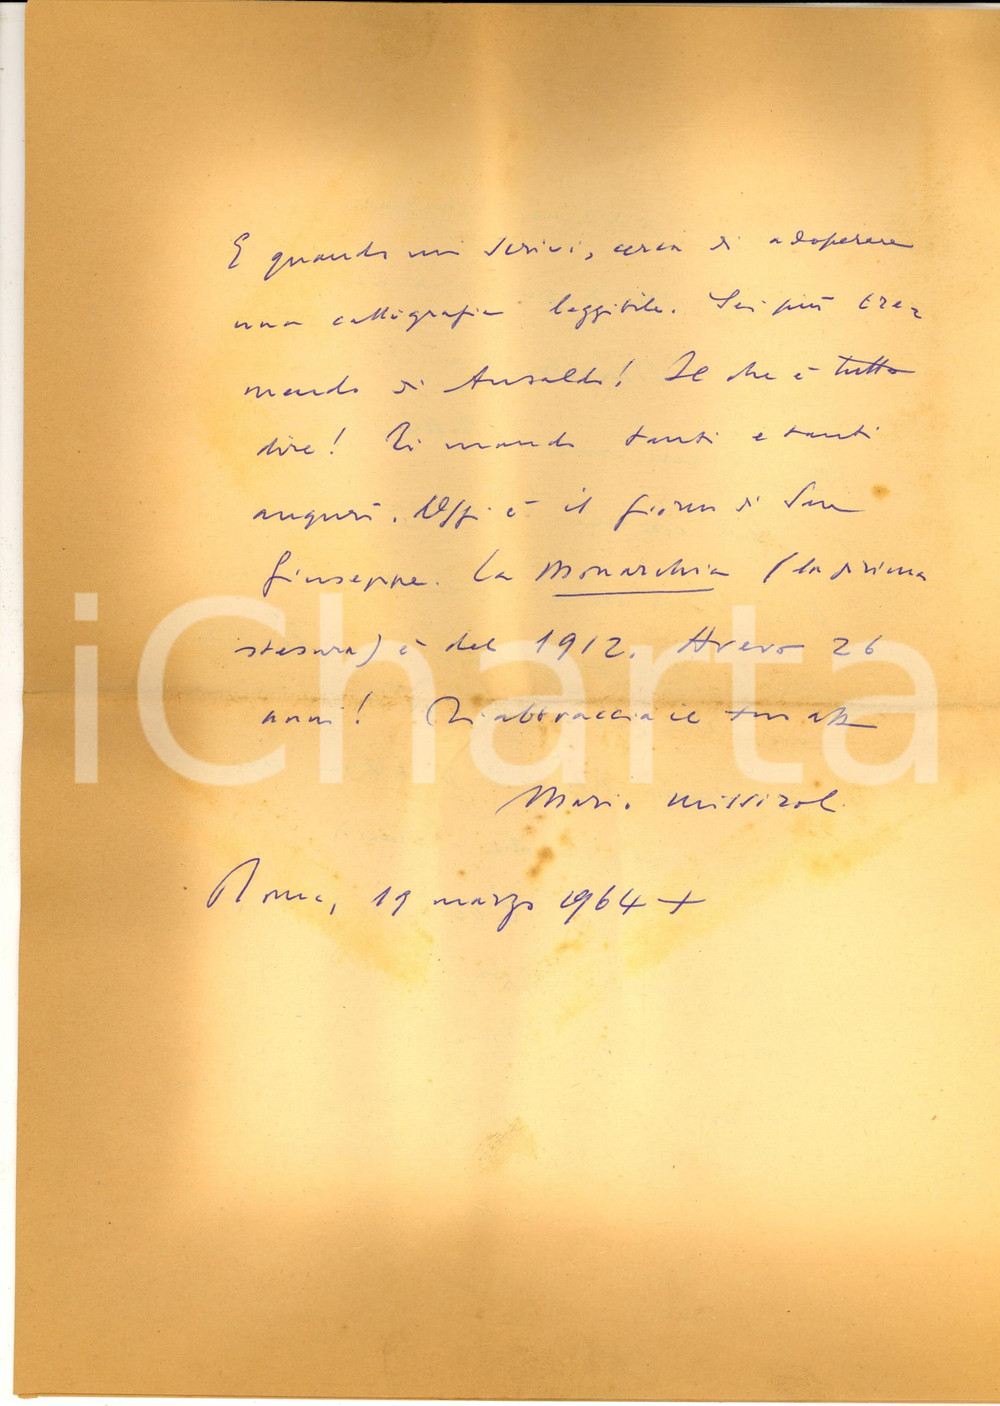 E quando mi scrivi, cerca di adoperare
una calligrafia leggibile. Sei più tre-
mendo di Ansaldo! Il che è tutto
dire! Ti mando tanti e tanti
auguri. Oggi è il giorno di San
Giuseppe. La Monarchia (la prima
stesura) è del 1912. Avevo 26
anni! Ti abbraccia il tuo
Mario Missiroli
Roma, 19 marzo 1964
iCharta